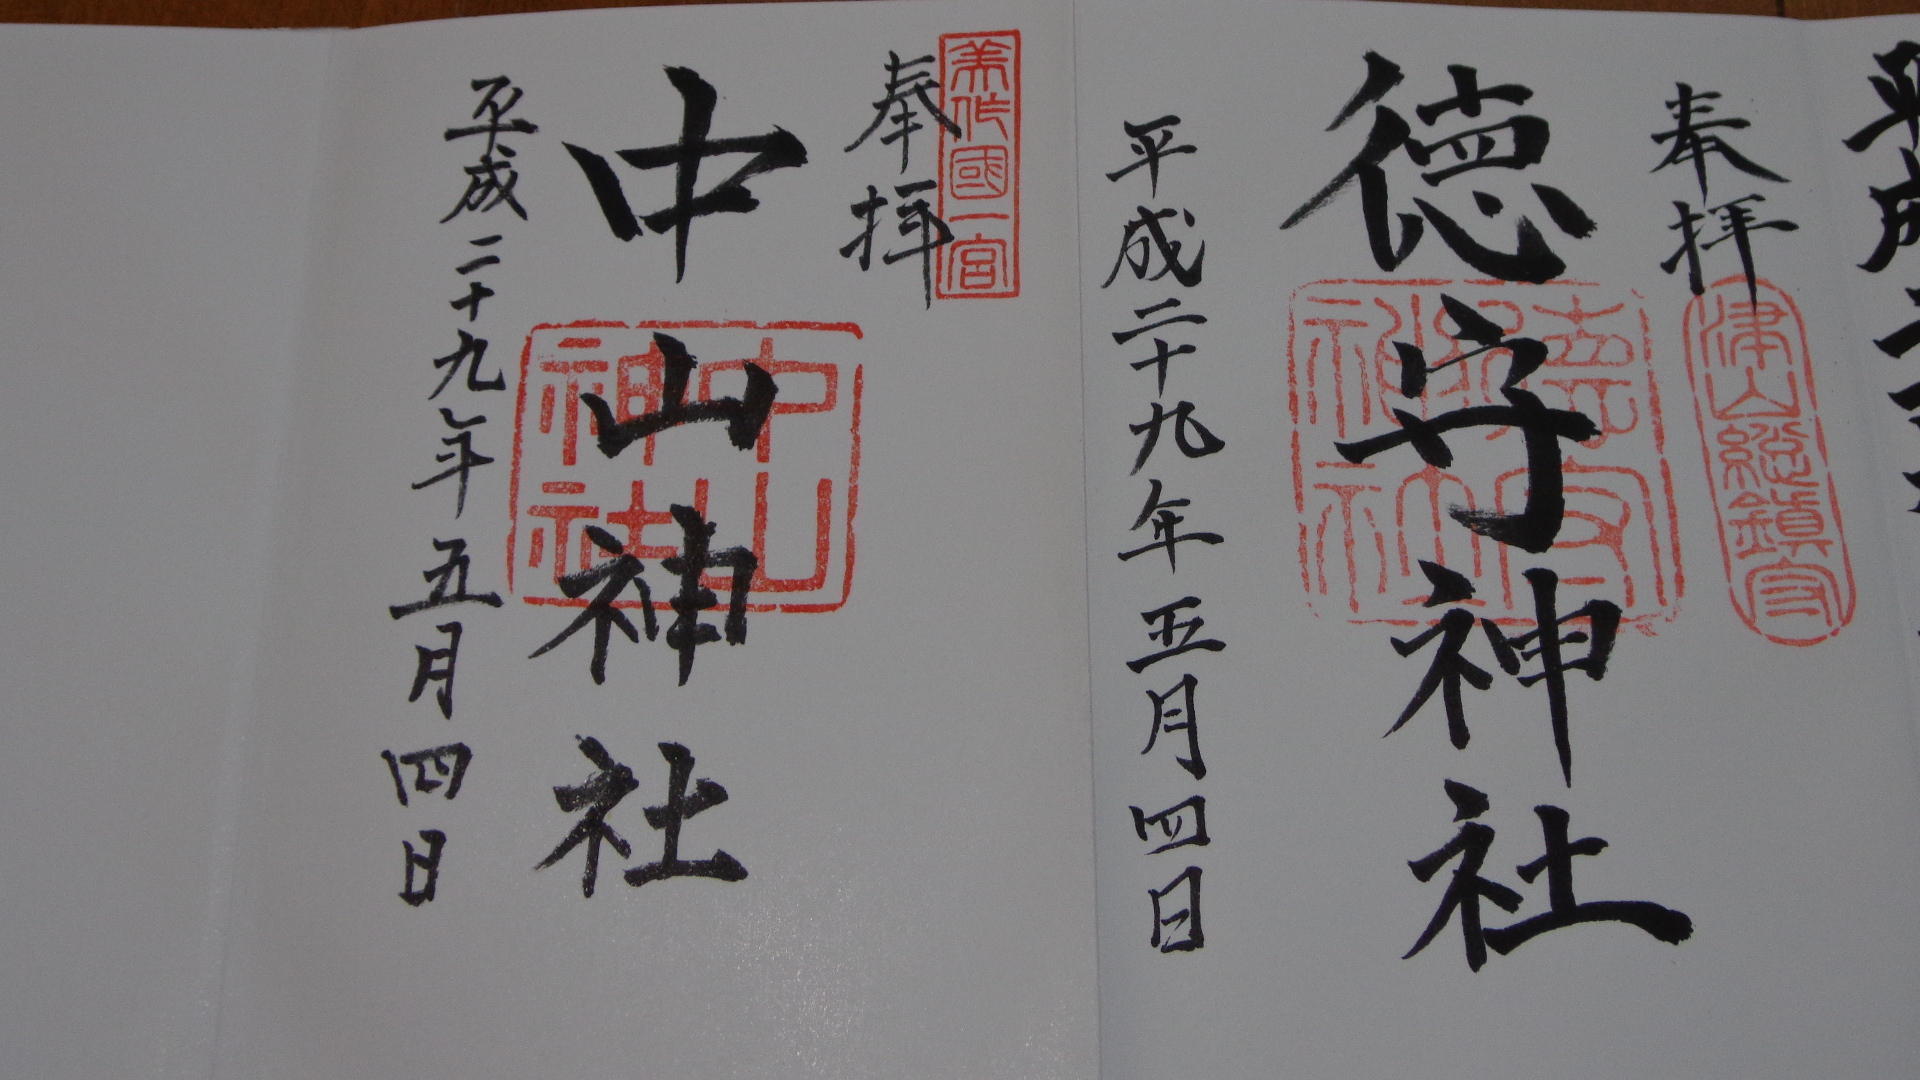 平成二十
奉拝
津山総鎮守
徳守神社
徳守神社
平成二十九年五月四日
美作國一宮
奉拝
中山神社
中山神社
平成二十九年五月四日